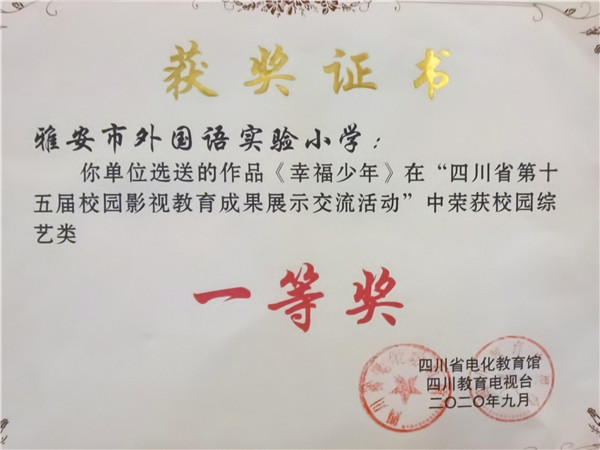 获奖证书
雅安市外国语实验小学：
你单位选送的作品《幸福少年》在“四川省第十
五届校园影视教育成果展示交流活动”中荣获校园综
艺类
一等奖
四川省电化教育馆
四川教育电视台
二〇二〇年九月